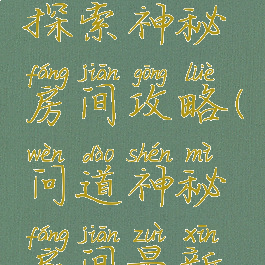 探索神秘
fáng jiān gōng lüè
房间攻略(
wèn dào shén mì
问道神秘
fáng jiān zuì xīn
房间最新